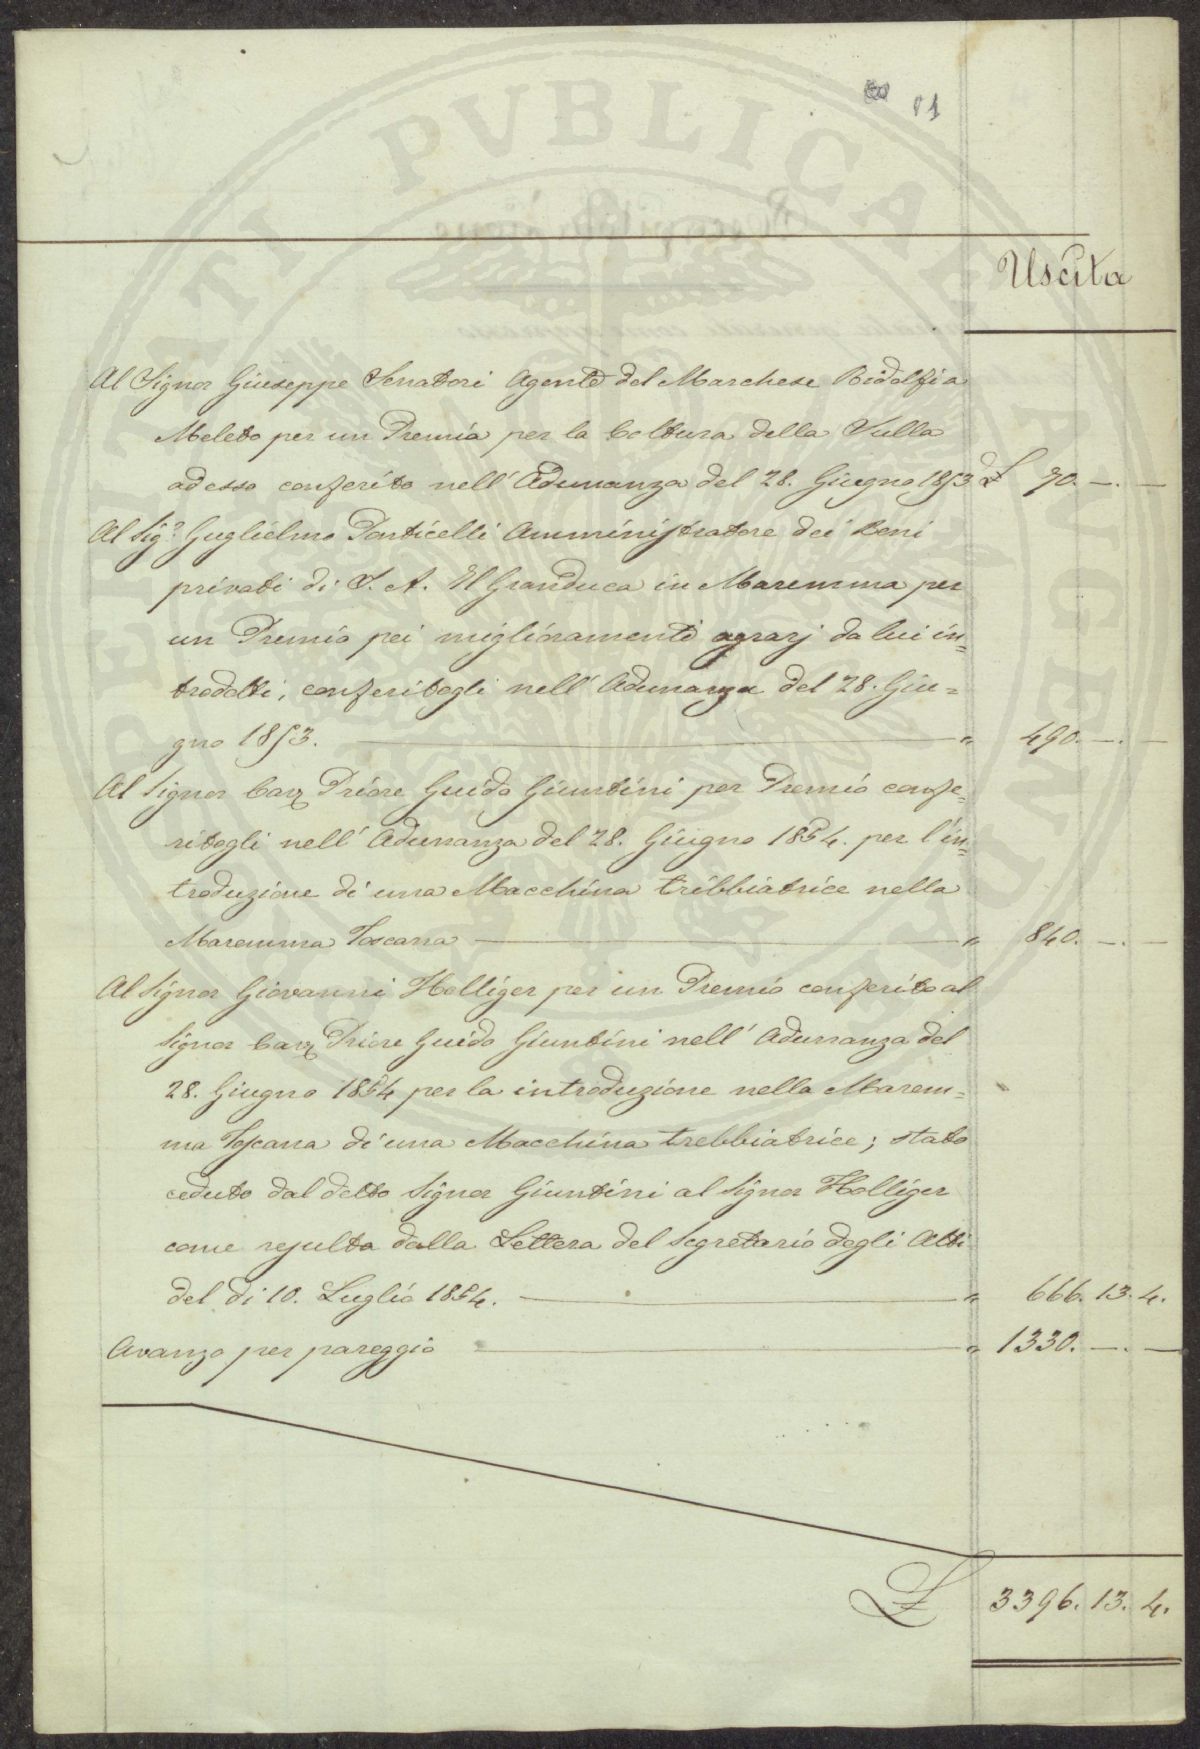 81
Uscita
Al Signor Giuseppe Senatori Agente del Marchese Ridolfi a
Meleto per un Premio per la Coltura della Sulla
adesso conferito nell' Adunanza del 28. Giugno 1853 £ 70. —. —
Al Sig.r Guglielmo Ponticelli Amministratore dei Beni
privati di S. A. Il Granduca in Maremma per
un Premio pei miglioramenti agrarj da lui in=
trodotti, conferitogli nell' Adunanza del 28. Giu=
gno 1853. " 490. —. —
Al Signor Cav. Priore Guido Giuntini per Premio confe=
ritogli nell' Adunanza del 28. Giugno 1854. per l'in=
troduzione di una Macchina tribbiatrice nella
Maremma Toscana " 840. —. —
Al Signor Giovanni Holliger per un Premio conferito al
Signor Cav. Priore Guido Giuntini nell' Adunanza del
28. Giugno 1854 per la introduzione nella Marem=
ma Toscana di una Macchina trebbiatrice; stato
ceduto dal detto Signor Giuntini al Signor Holliger
come resulta dalla Lettera del Segretario degli Atti
del di 10. Luglio 1854. " 666. 13. 4.
Avanzo per pareggio " 1330. —. —
£ 3396. 13. 4.